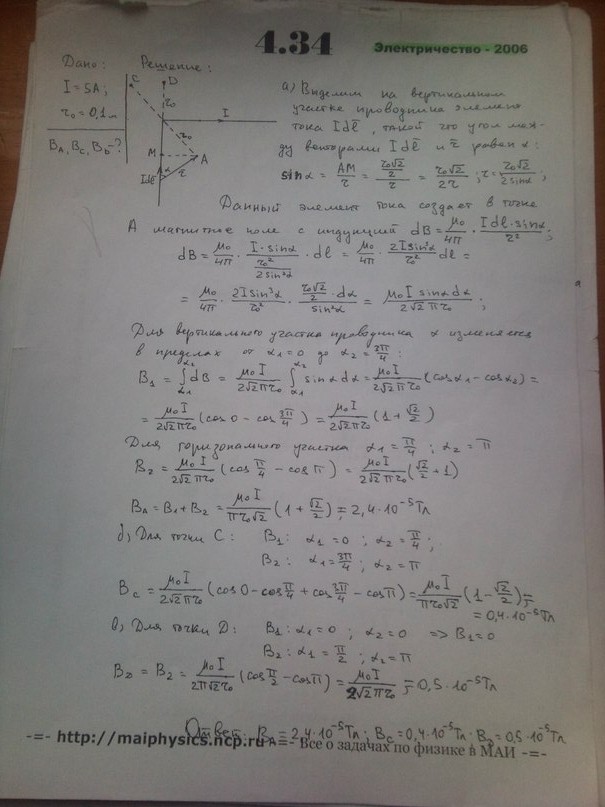 4.34
Электричество - 2006
Дано: Решение:
I = 5A;
r₀ = 0,1 м
B_A, B_C, B_D - ?
C D
r₀
I
r₀
M A
r
Idl α
а) Выделим на вертикальном
участке проводника элемент
тока Idl̄, такой что угол меж-
ду векторами Idl̄ и r̄ равен α:
sinα = AM/r = (r₀√2/2)/r = r₀√2/2r ; r = r₀√2/2sinα ;
Данный элемент тока создает в точке
А магнитное поле с индукцией dB = μ₀/4π · Idl·sinα/r² ;
dB = μ₀/4π · I·sinα/(r₀²/2sin²α) · dl = μ₀/4π · 2Isin³α/r₀² dl =
= μ₀/4π · 2Isin³α/r₀² · (r₀√2/2 · dα)/sin²α = μ₀I sinα dα/2√2πr₀ ;
Для вертикального участка проводника α изменяется
в пределах от α₁=0 до α₂ = 3π/4 :
B₁ = ∫dB = μ₀I/2√2πr₀ ∫ sinα dα = μ₀I/2√2πr₀ (cosα₁ - cosα₂) =
= μ₀I/2√2πr₀ (cos0 - cos 3π/4) = μ₀I/2√2πr₀ (1 + √2/2)
Для горизонального участка α₁ = π/4 ; α₂ = π
B₂ = μ₀I/2√2πr₀ (cos π/4 - cosπ) = μ₀I/2√2πr₀ (√2/2 + 1)
B_A = B₁ + B₂ = μ₀I/πr₀√2 (1 + √2/2) = 2,4·10⁻⁵ Тл
б) Для точки C: B₁: α₁ = 0 ; α₂ = π/4 ;
B₂: α₁ = 3π/4 ; α₂ = π
B_C = μ₀I/2√2πr₀ (cos0 - cos π/4 + cos 3π/4 - cosπ) = μ₀I/πr₀√2 (1 - √2/2) =
= 0,4·10⁻⁵ Тл
в) Для точки D: B₁: α₁ = 0 ; α₂ = 0 => B₁ = 0
B₂: α₁ = π/2 ; α₂ = π
B_D = B₂ = μ₀I/2π√2r₀ (cos π/2 - cosπ) = μ₀I/2√2πr₀ = 0,5·10⁻⁵ Тл
Ответ: B_A = 2,4·10⁻⁵ Тл; B_C = 0,4·10⁻⁵ Тл; B_D = 0,5·10⁻⁵ Тл
-=- http://maiphysics.ncp.ru -=- Все о задачах по физике в МАИ -=-